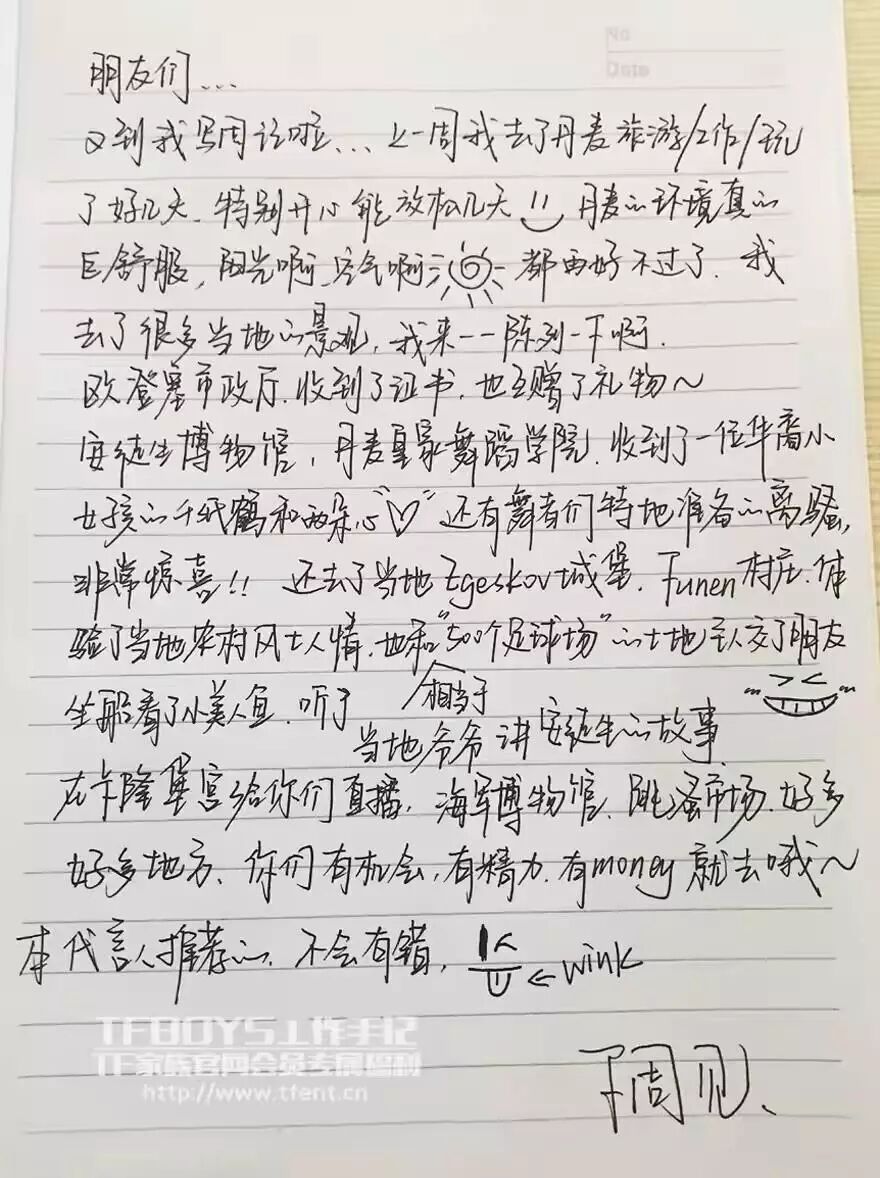 No
Date
朋友们...
又到我写周记啦... 上一周我去了丹麦旅游/工作/玩
了好几天、特别开心能放松几天 丹麦的环境真的
巨舒服,阳光啊、空气啊 都再好不过了、我
去了很多当地的景观,我来一一陈列一下啊.
欧登塞市政厅.收到了证书、也互赠了礼物~
安徒生博物馆,丹麦皇家舞蹈学院、收到了一位华裔小
女孩的千纸鹤和两朵心“♡”还有舞者们特地准备的离骚,
非常惊喜!! 还去了当地Egeskov城堡.Funen村庄.体
验了当地农村风土人情.也和“500个足球场”的土地主人交了朋友
相当于
坐船看了小美人鱼、听了
当地爷爷讲安徒生的故事、
在卡隆堡宫给你们直播,海军博物馆、跳蚤市场、好多
好多地方、你们有机会,有精力、有money就去哦~
本代言人推荐的、不会有错, ←wink
下周见、
TFBOYS工作手记
TF家族官网会员专属福利
http://www.tfent.cn